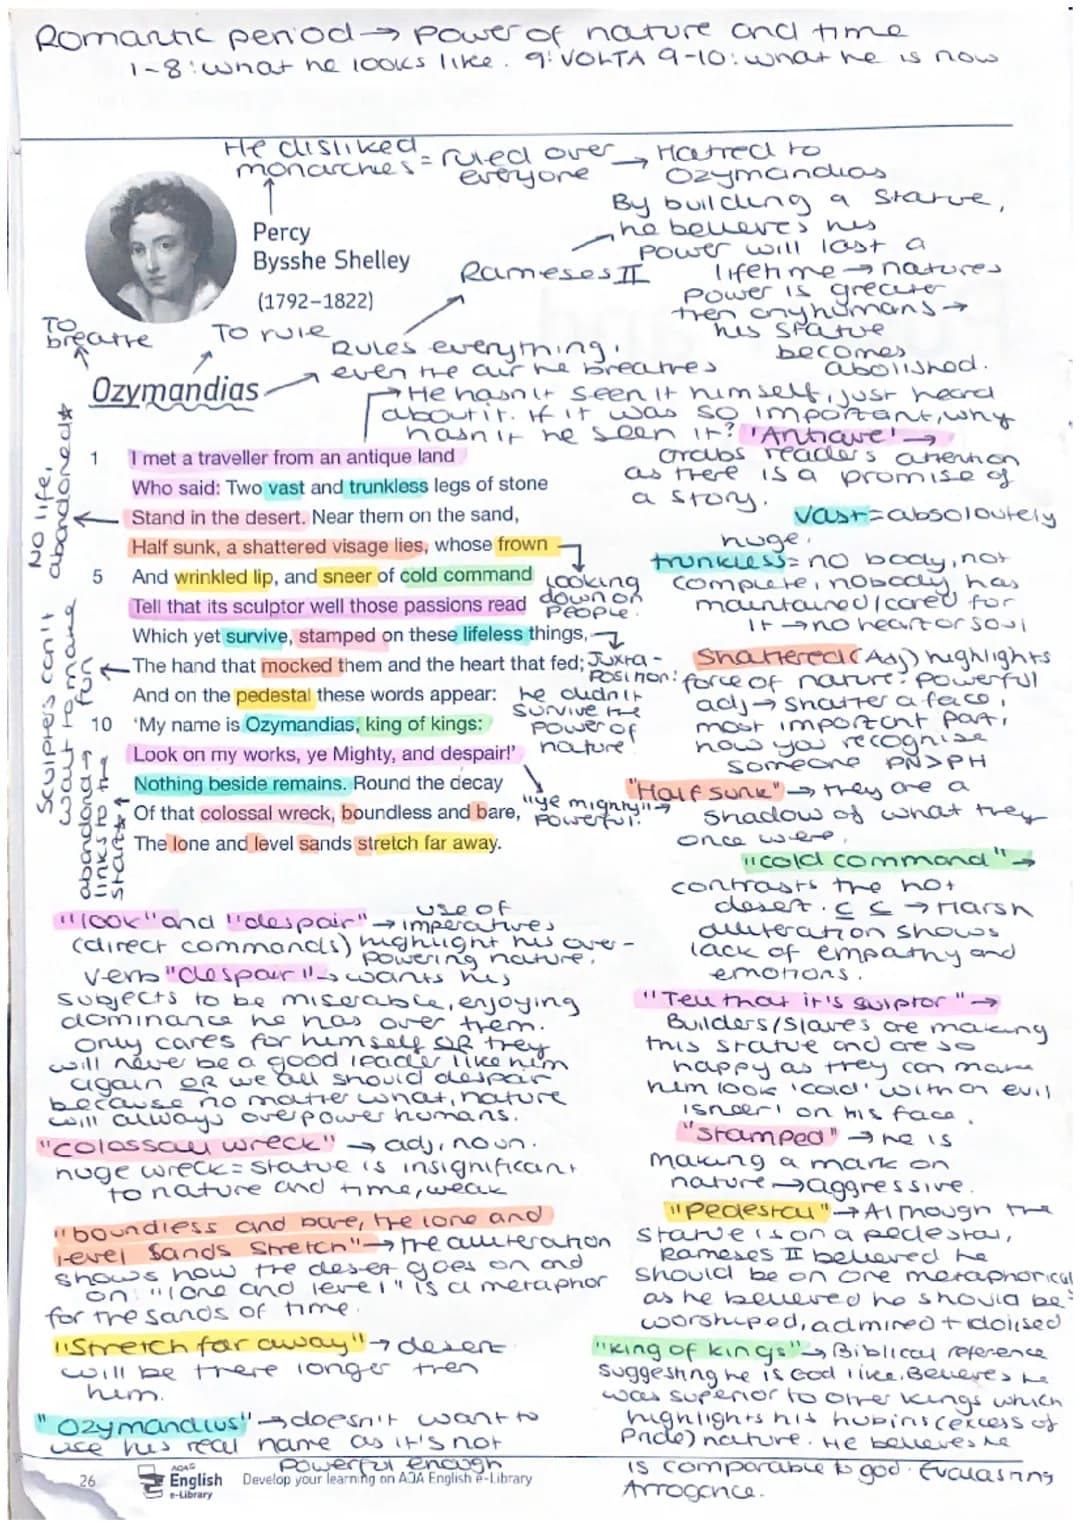 Romantic period → power of nature and time
1-8: what he looks like. 9: VOLTA 9-10: what he is now
He disliked monarchies = ruled over everyone → Hatred to Ozymandias
Percy
Bysshe Shelley
(1792–1822)
Rameses II
By building a statue,
he believes his
power will last a
lifetime → natures
power is greater
then anyhumans →
his statue
becomes
abolished.
To breathe
To rule
Rules everything,
even the air he breathes
Ozymandias
He hasn't seen it himself, just heard
about it. If it was so important, why
hasn't he seen it?
'Antique' →
Grabs readers attention
as there is a promise of
a story.
1 I met a traveller from an antique land
Who said: Two vast and trunkless legs of stone
Stand in the desert. Near them on the sand,
Half sunk, a shattered visage lies, whose frown
5 And wrinkled lip, and sneer of cold command
Tell that its sculptor well those passions read
Which yet survive, stamped on these lifeless things,
The hand that mocked them and the heart that fed;
And on the pedestal these words appear:
10 'My name is Ozymandias, king of kings:
Look on my works, ye Mighty, and despair!'
Nothing beside remains. Round the decay
Of that colossal wreck, boundless and bare,
The lone and level sands stretch far away.
No life,
abandoned*
Sculpters can't
wait to make
fun
abandond →
links to the
start*
Looking
down on
people.
Juxta-
position:
he didn't
survive the
power of
nature.
"ye mighty" →
powerful.
Vast = absoloutely
huge.
trunkless = no body, not
complete, nobody has
maintained/cared for
it → no heart or soul
Shattered (Adj) highlights
force of nature: powerful
adj → shatter a face,
most important part,
how you recognise
someone PN>PH
"Half sunk" → they are a
shadow of what they
once were.
"cold command" →
contrasts the hot
desert. C C → Harsh
alliteration shows
lack of empathy and
emotions.
"Tell that it's sulptor" →
Builders/Slaves are making
this statue and are so
happy as they can make
him look 'cold' with an evil
'sneer' on his face.
"stamped" → he is
making a mark on
nature → aggressive.
"Pedestal" → Although the
statue is on a pedestal,
Rameses II believed he
should be on one metaphorical
as he believed he should be
worshiped, admired + idolised
"King of kings" → Biblical reference
suggesting he is God like. Believes he
was superior to other kings which
highlights his hubris (excess of
Pride) nature. He believes he
is comparable to god.
Arrogance.
"look" and "despair" → use of
imperatives
(direct commands) highlight his over-
powering nature.
verb "despair" → wants his
subjects to be miserable, enjoying
dominance he has over them.
Only cares for himself OR they
will never be a good leader like him
again OR we all should despair
because no matter what, nature
will always overpower humans.
"colossal wreck" → adj, noun.
huge wreck = statue is insignificant
to nature and time, weak
"boundless and bare, the lone and
level sands stretch" → the alliteration
shows how the desert goes on and
on. "lone and level" is a metaphor
for the sands of time.
"Stretch far away" → desert
will be there longer then
him.
"Ozymandius" → doesn't want to
use his real name as it's not
powerful enough
26
AQA
English
e-Library
Develop your learning on AQA English e-Library